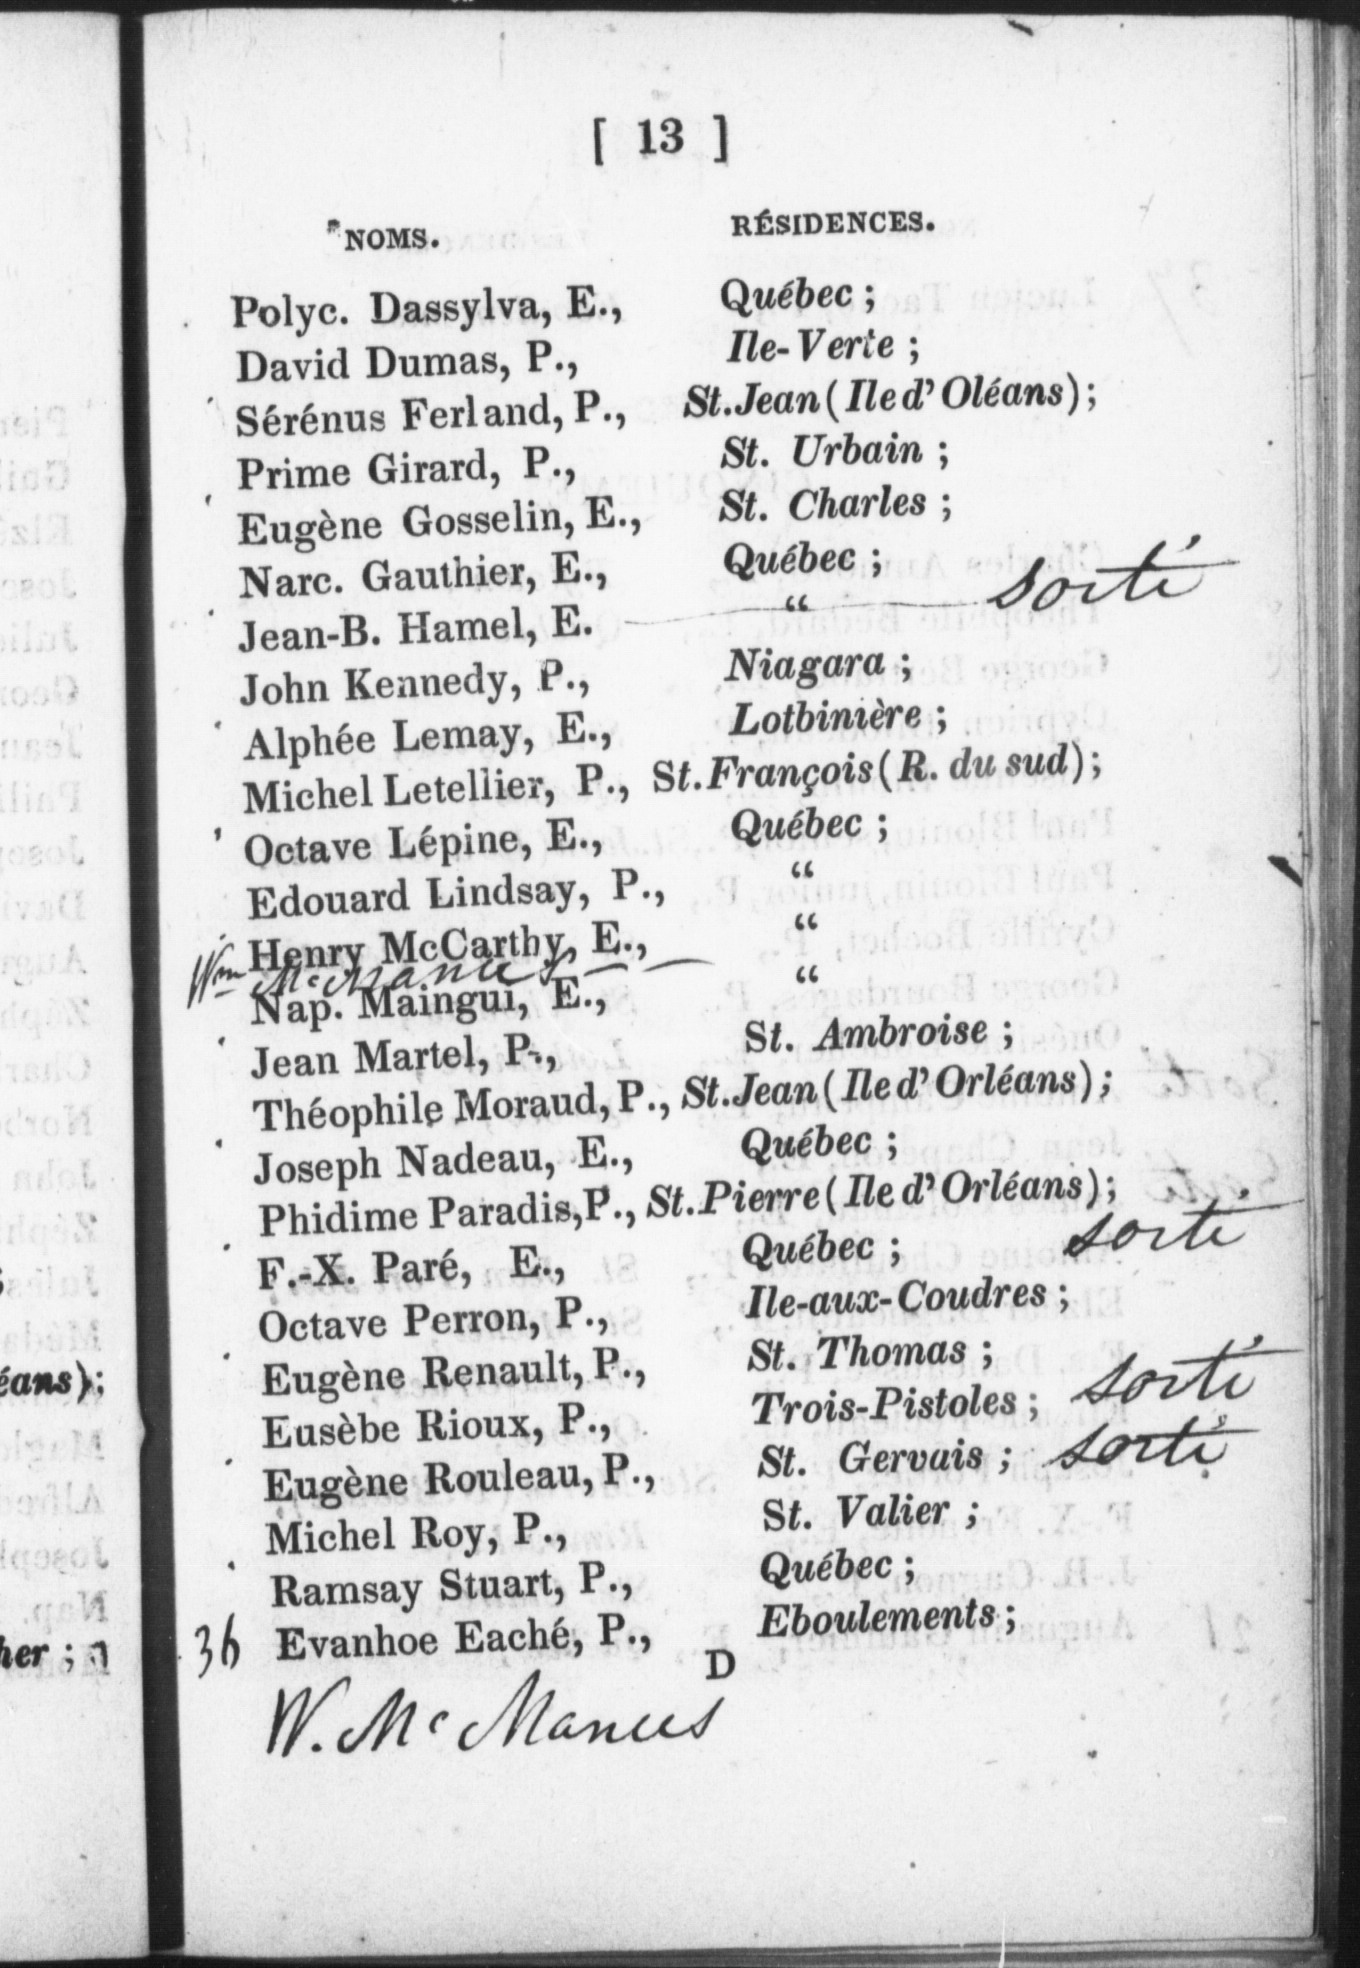 [ 13 ]
NOMS. RÉSIDENCES.
Polyc. Dassylva, E., Québec ;
David Dumas, P., Ile-Verte ;
Sérénus Ferland, P., St. Jean (Ile d' Oléans) ;
Prime Girard, P., St. Urbain ;
Eugène Gosselin, E., St. Charles ;
Narc. Gauthier, E., Québec ;
Jean-B. Hamel, E. “ sorti
John Kennedy, P., Niagara ;
Alphée Lemay, E., Lotbinière ;
Michel Letellier, P., St. François (R. du sud) ;
Octave Lépine, E., Québec ;
Edouard Lindsay, P., “
Henry McCarthy, E., “
Wm McManus
Nap. Maingui, E., “
Jean Martel, P., St. Ambroise ;
Théophile Moraud, P., St. Jean (Ile d' Orléans) ;
Joseph Nadeau, E., Québec ;
Phidime Paradis, P., St. Pierre (Ile d' Orléans) ;
F.-X. Paré, E., Québec ; sorti
Octave Perron, P., Ile-aux-Coudres ;
Eugène Renault, P., St. Thomas ;
Eusèbe Rioux, P., Trois-Pistoles ; sorti
Eugène Rouleau, P., St. Gervais ; sorti
Michel Roy, P., St. Valier ;
Ramsay Stuart, P., Québec ;
36 Evanhoe Eaché, P., Eboulements ;
D
W. McManus
éans) ;
her ;